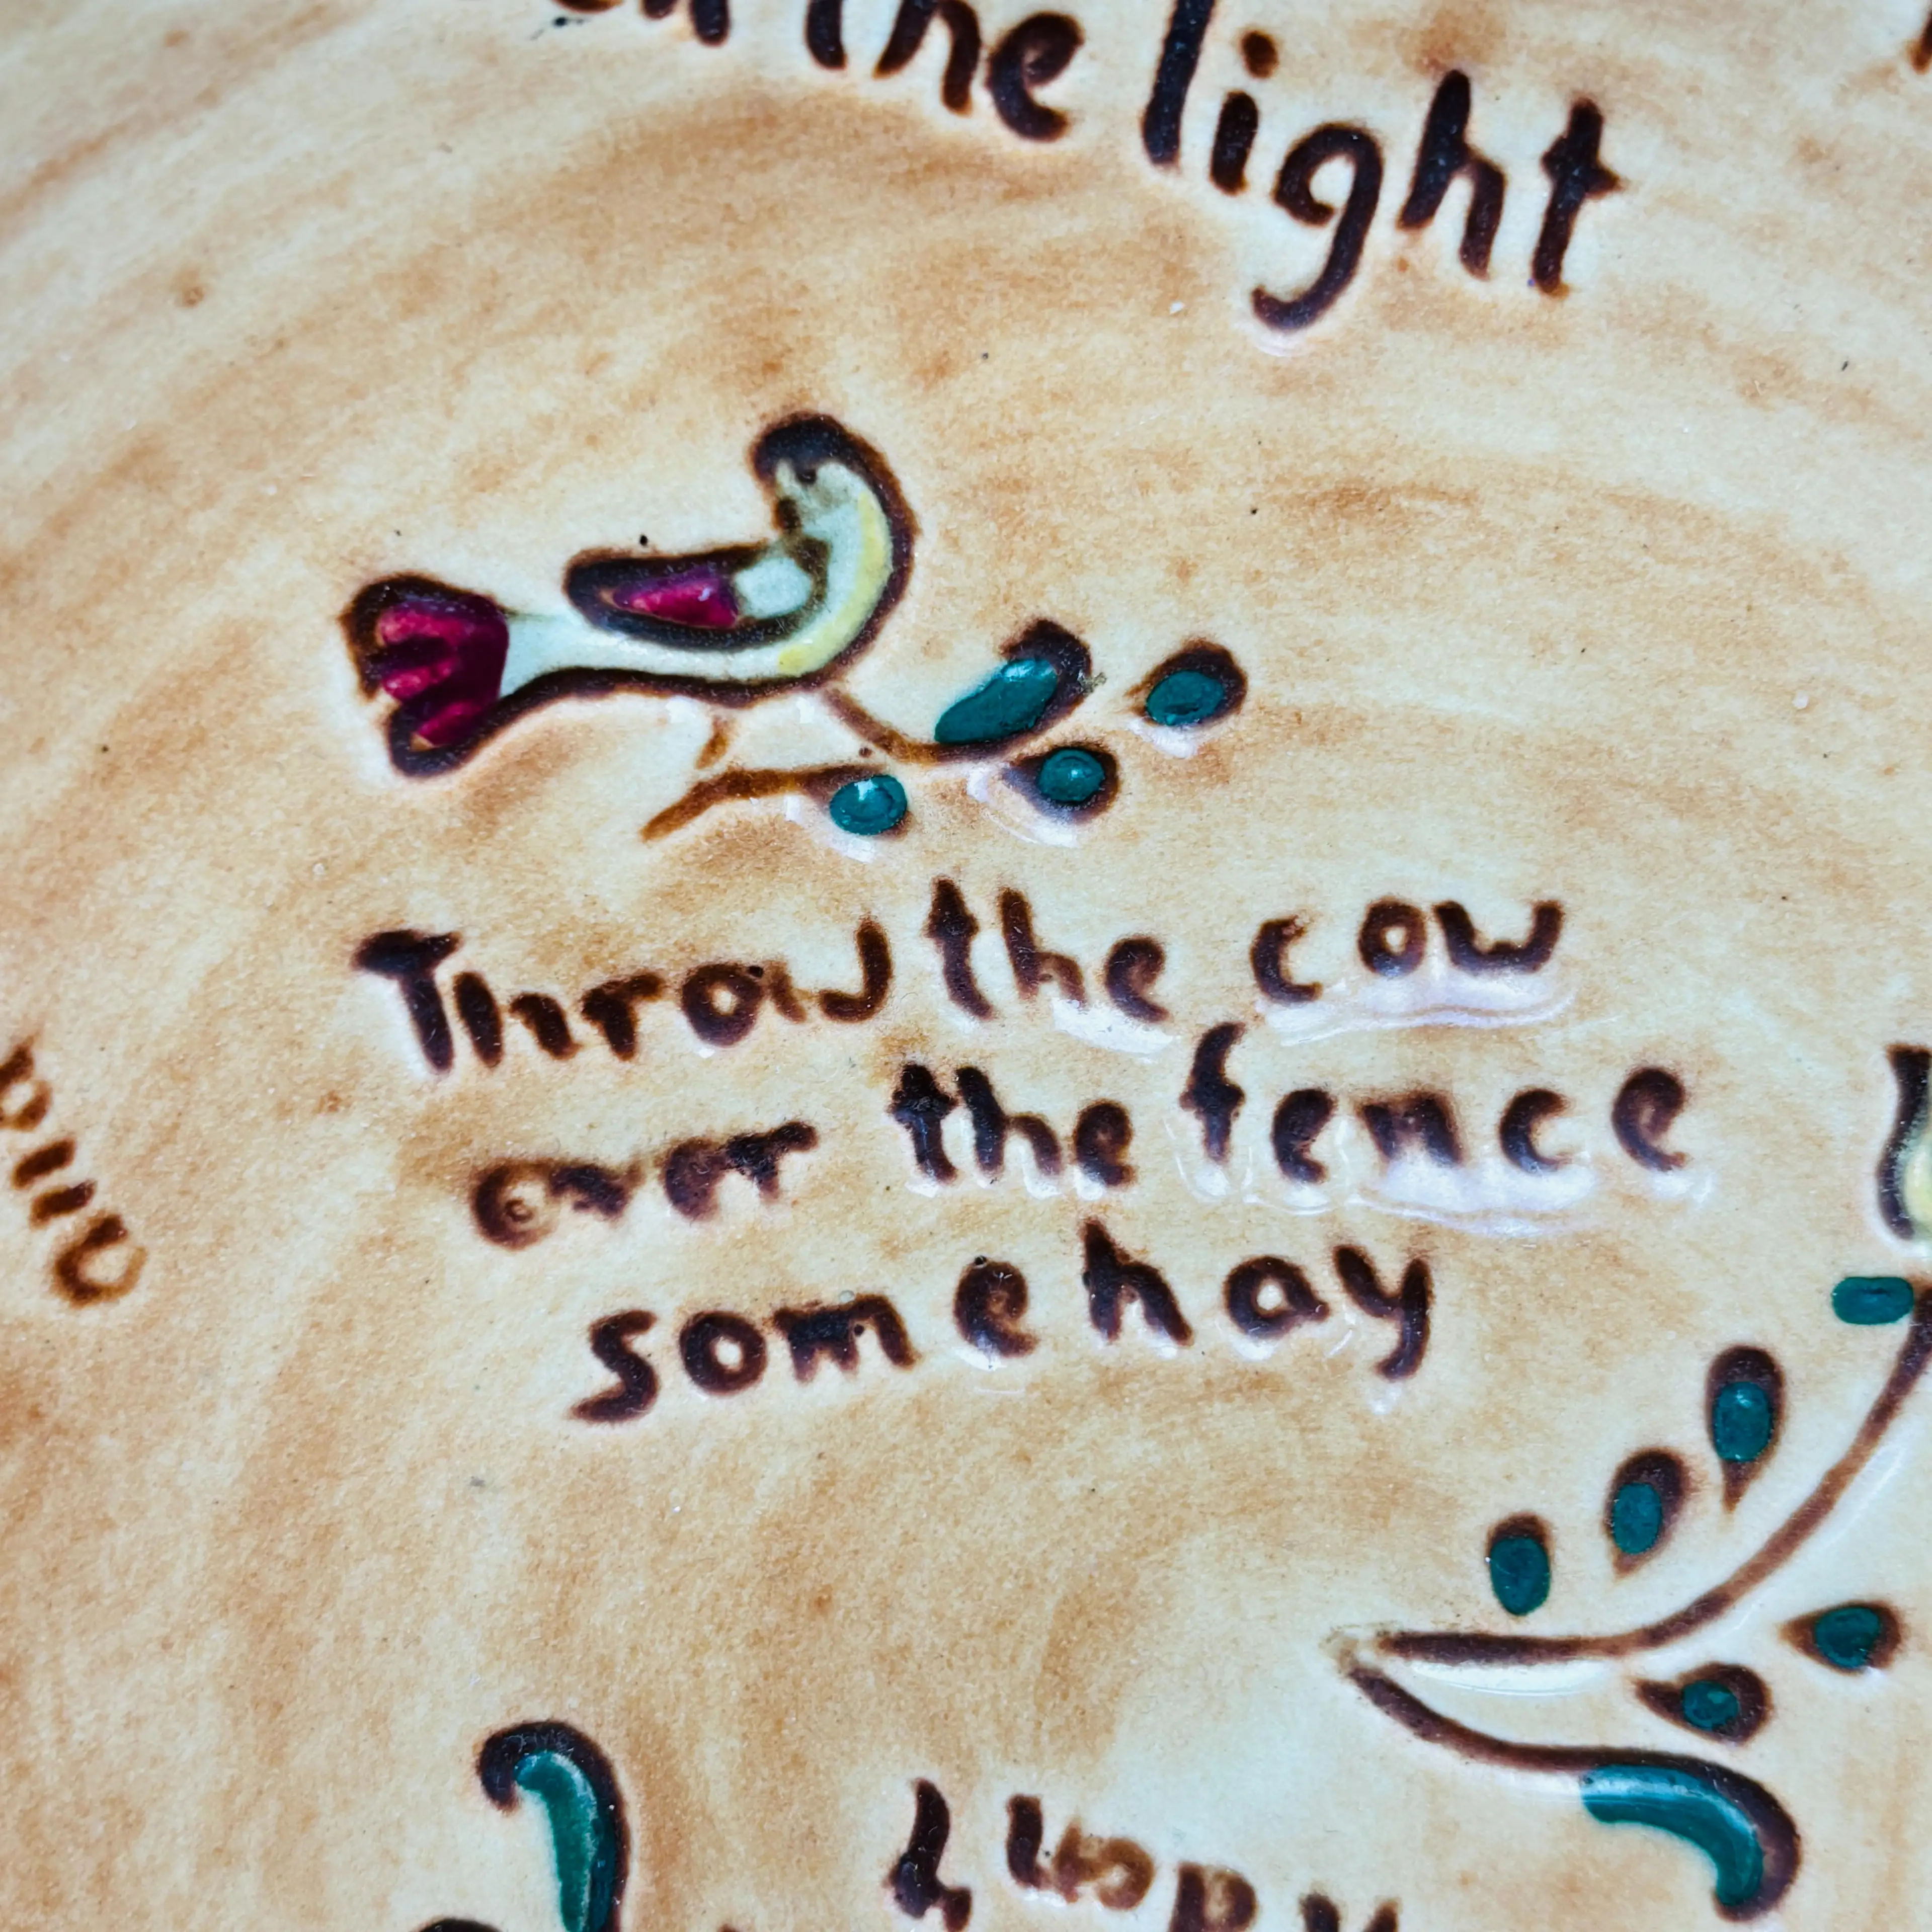 the light
Throw the cow
over the fence
some hay